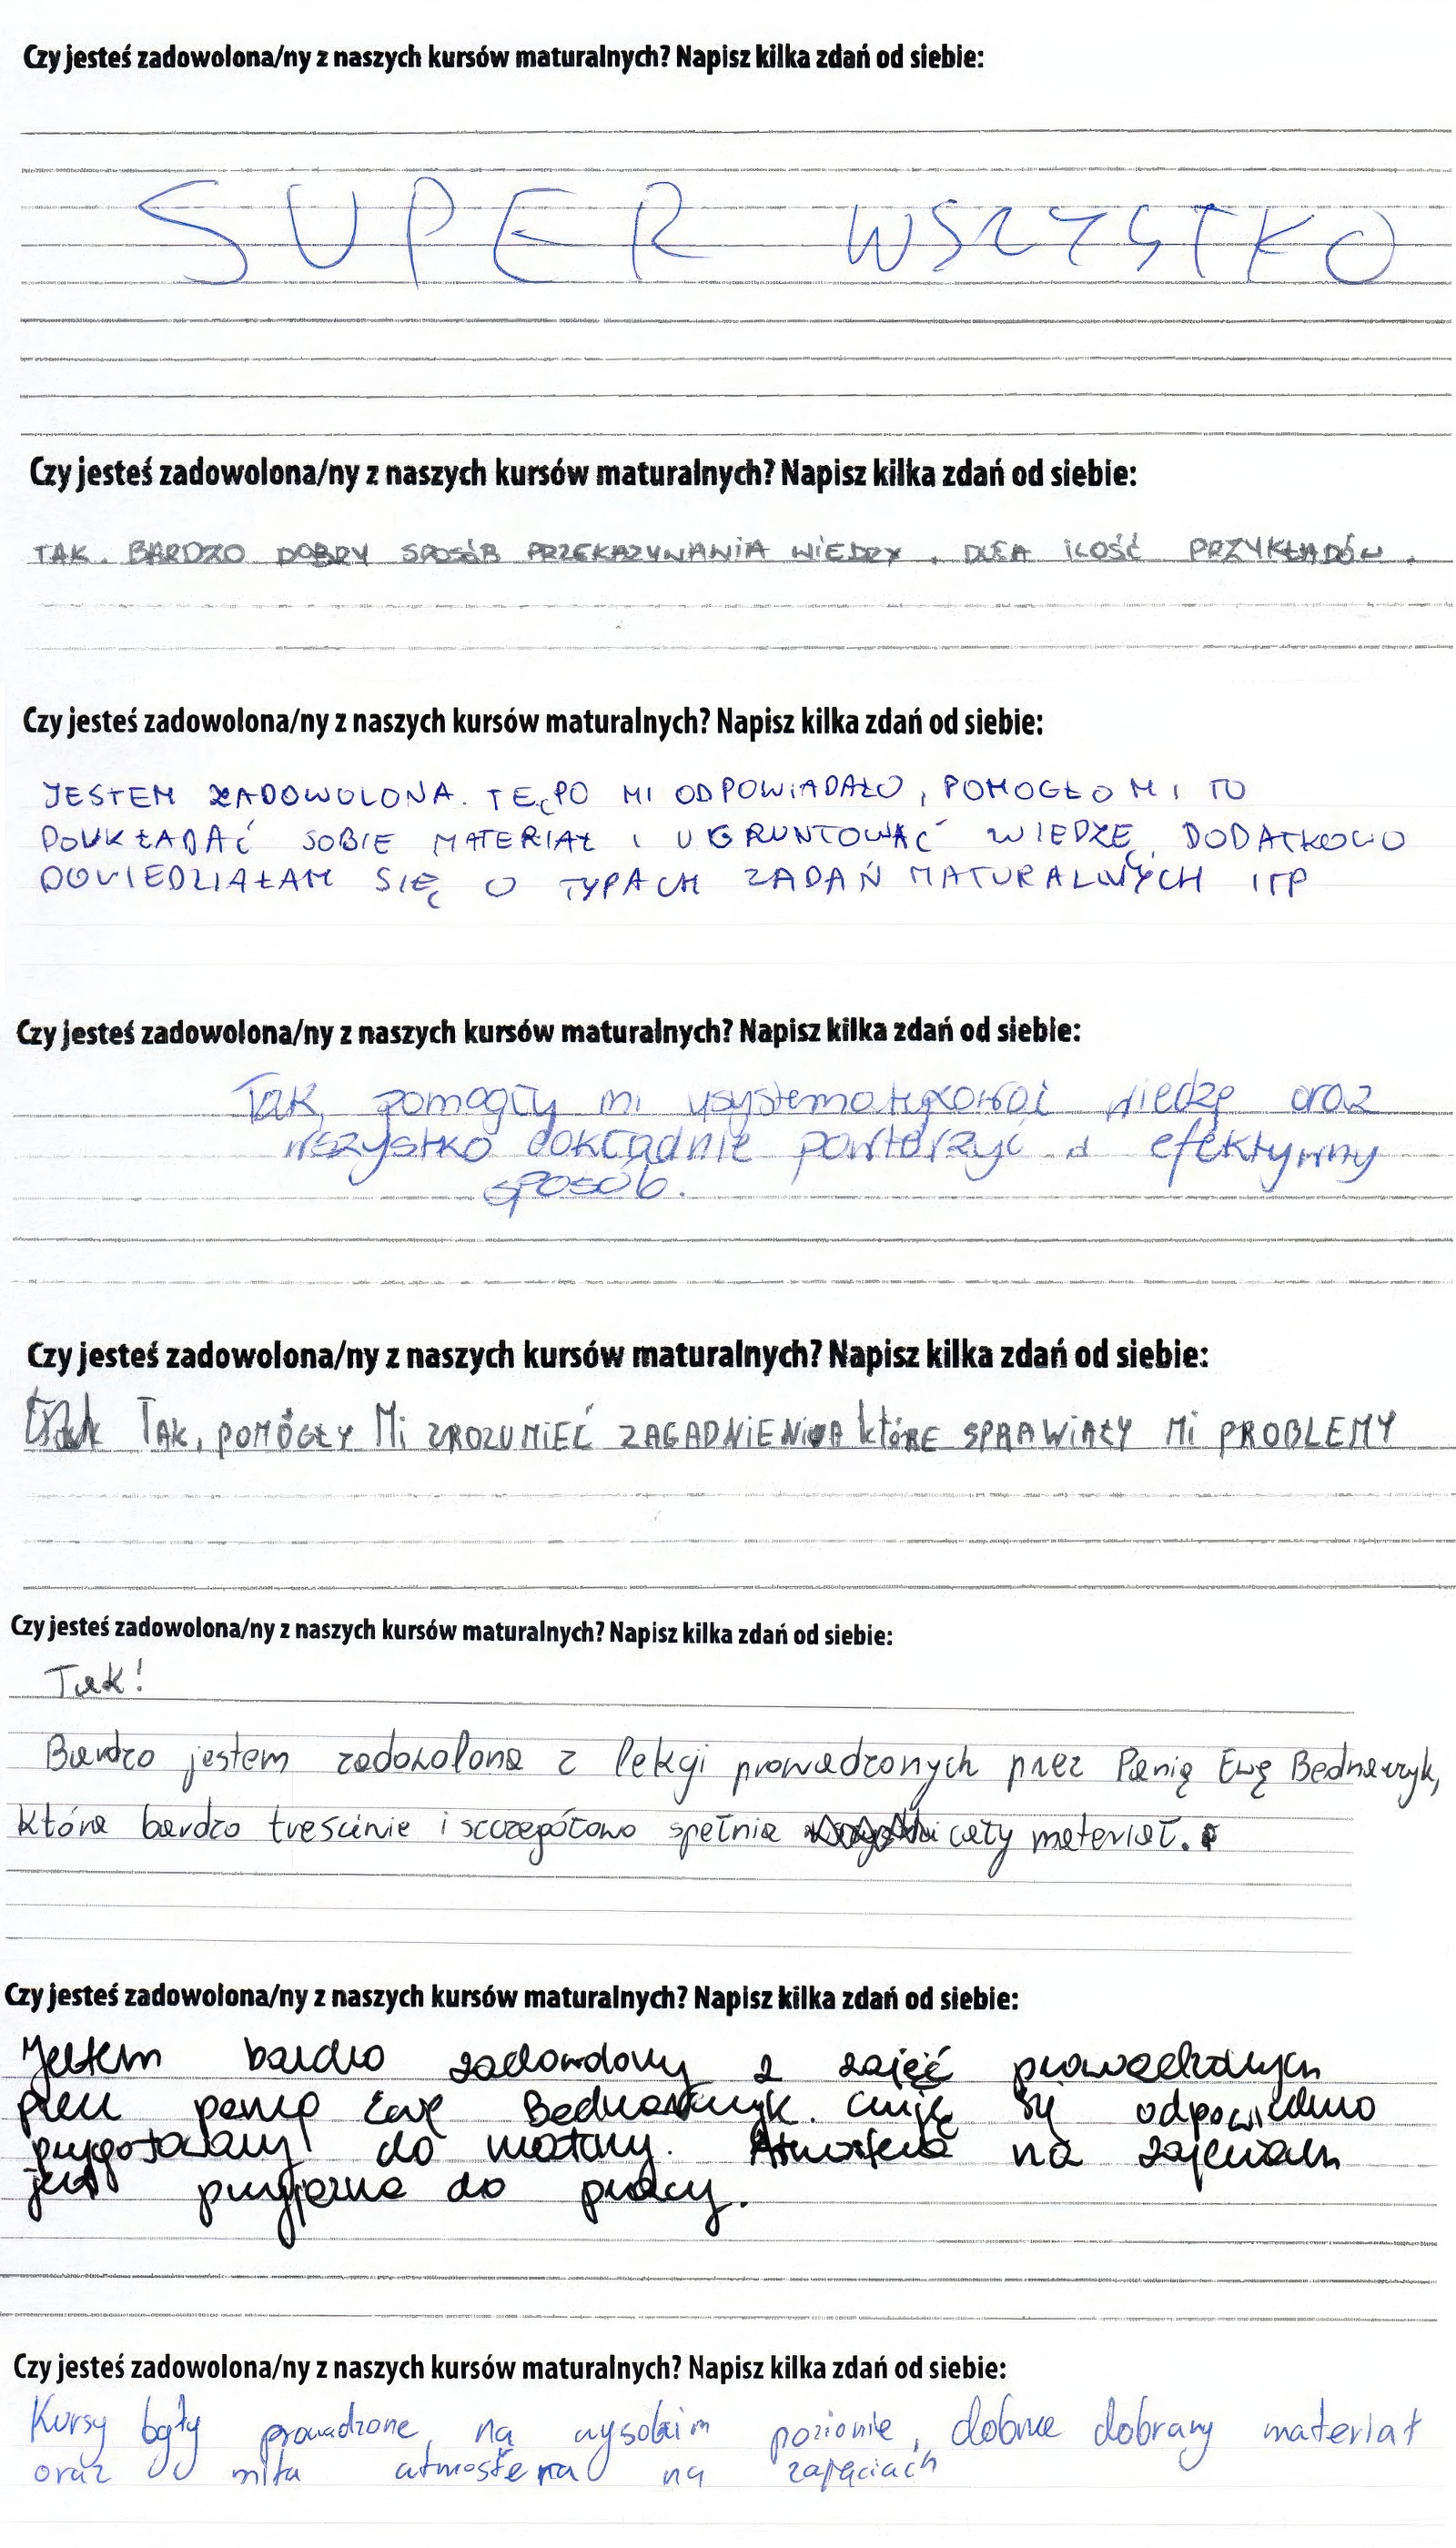 Czy jesteś zadowolona/ny z naszych kursów maturalnych? Napisz kilka zdań od siebie:
SUPER WSZYSTKO
Czy jesteś zadowolona/ny z naszych kursów maturalnych? Napisz kilka zdań od siebie:
TAK. BARDZO DOBRY SPOSÓB PRZEKAZYWANIA WIEDZY. DUŻA ILOŚĆ PRZYKŁADÓW.
Czy jesteś zadowolona/ny z naszych kursów maturalnych? Napisz kilka zdań od siebie:
JESTEM ZADOWOLONA. TĘPO MI ODPOWIADAŁO, POMOGŁO MI TO
POUKŁADAĆ SOBIE MATERIAŁ I UGRUNTOWAĆ WIEDZĘ. DODATKOWO
DOWIEDZIAŁAM SIĘ O TYPACH ZADAŃ MATURALNYCH ITP
Czy jesteś zadowolona/ny z naszych kursów maturalnych? Napisz kilka zdań od siebie:
Tak, pomogły mi usystematyzować wiedzę oraz
wszystko dokładnie powtórzyć w efektywny
sposób.
Czy jesteś zadowolona/ny z naszych kursów maturalnych? Napisz kilka zdań od siebie:
TAK, POMOGŁY Mi ZROZUMIEĆ ZAGADNIENIA któRE SPRAWIAŁY Mi PROBLEMY
Czy jesteś zadowolona/ny z naszych kursów maturalnych? Napisz kilka zdań od siebie:
Tak!
Bardzo jestem zadowolona z lekcji prowadzonych przez Panią Ewę Bednarczyk,
która bardzo treściwie i szczegółowo spełnia cały materiał.
Czy jesteś zadowolona/ny z naszych kursów maturalnych? Napisz kilka zdań od siebie:
Jestem bardzo zadowolony z zajęć prowadzonych
przez panią Ewę Bednarczyk. Czuję się odpowiednio
przygotowany do matury. Atmosfera na zajęciach
jest przyjazna do pracy.
Czy jesteś zadowolona/ny z naszych kursów maturalnych? Napisz kilka zdań od siebie:
Kursy były prowadzone na wysokim poziomie, dobrze dobrany materiał
oraz miła atmosfera na zajęciach